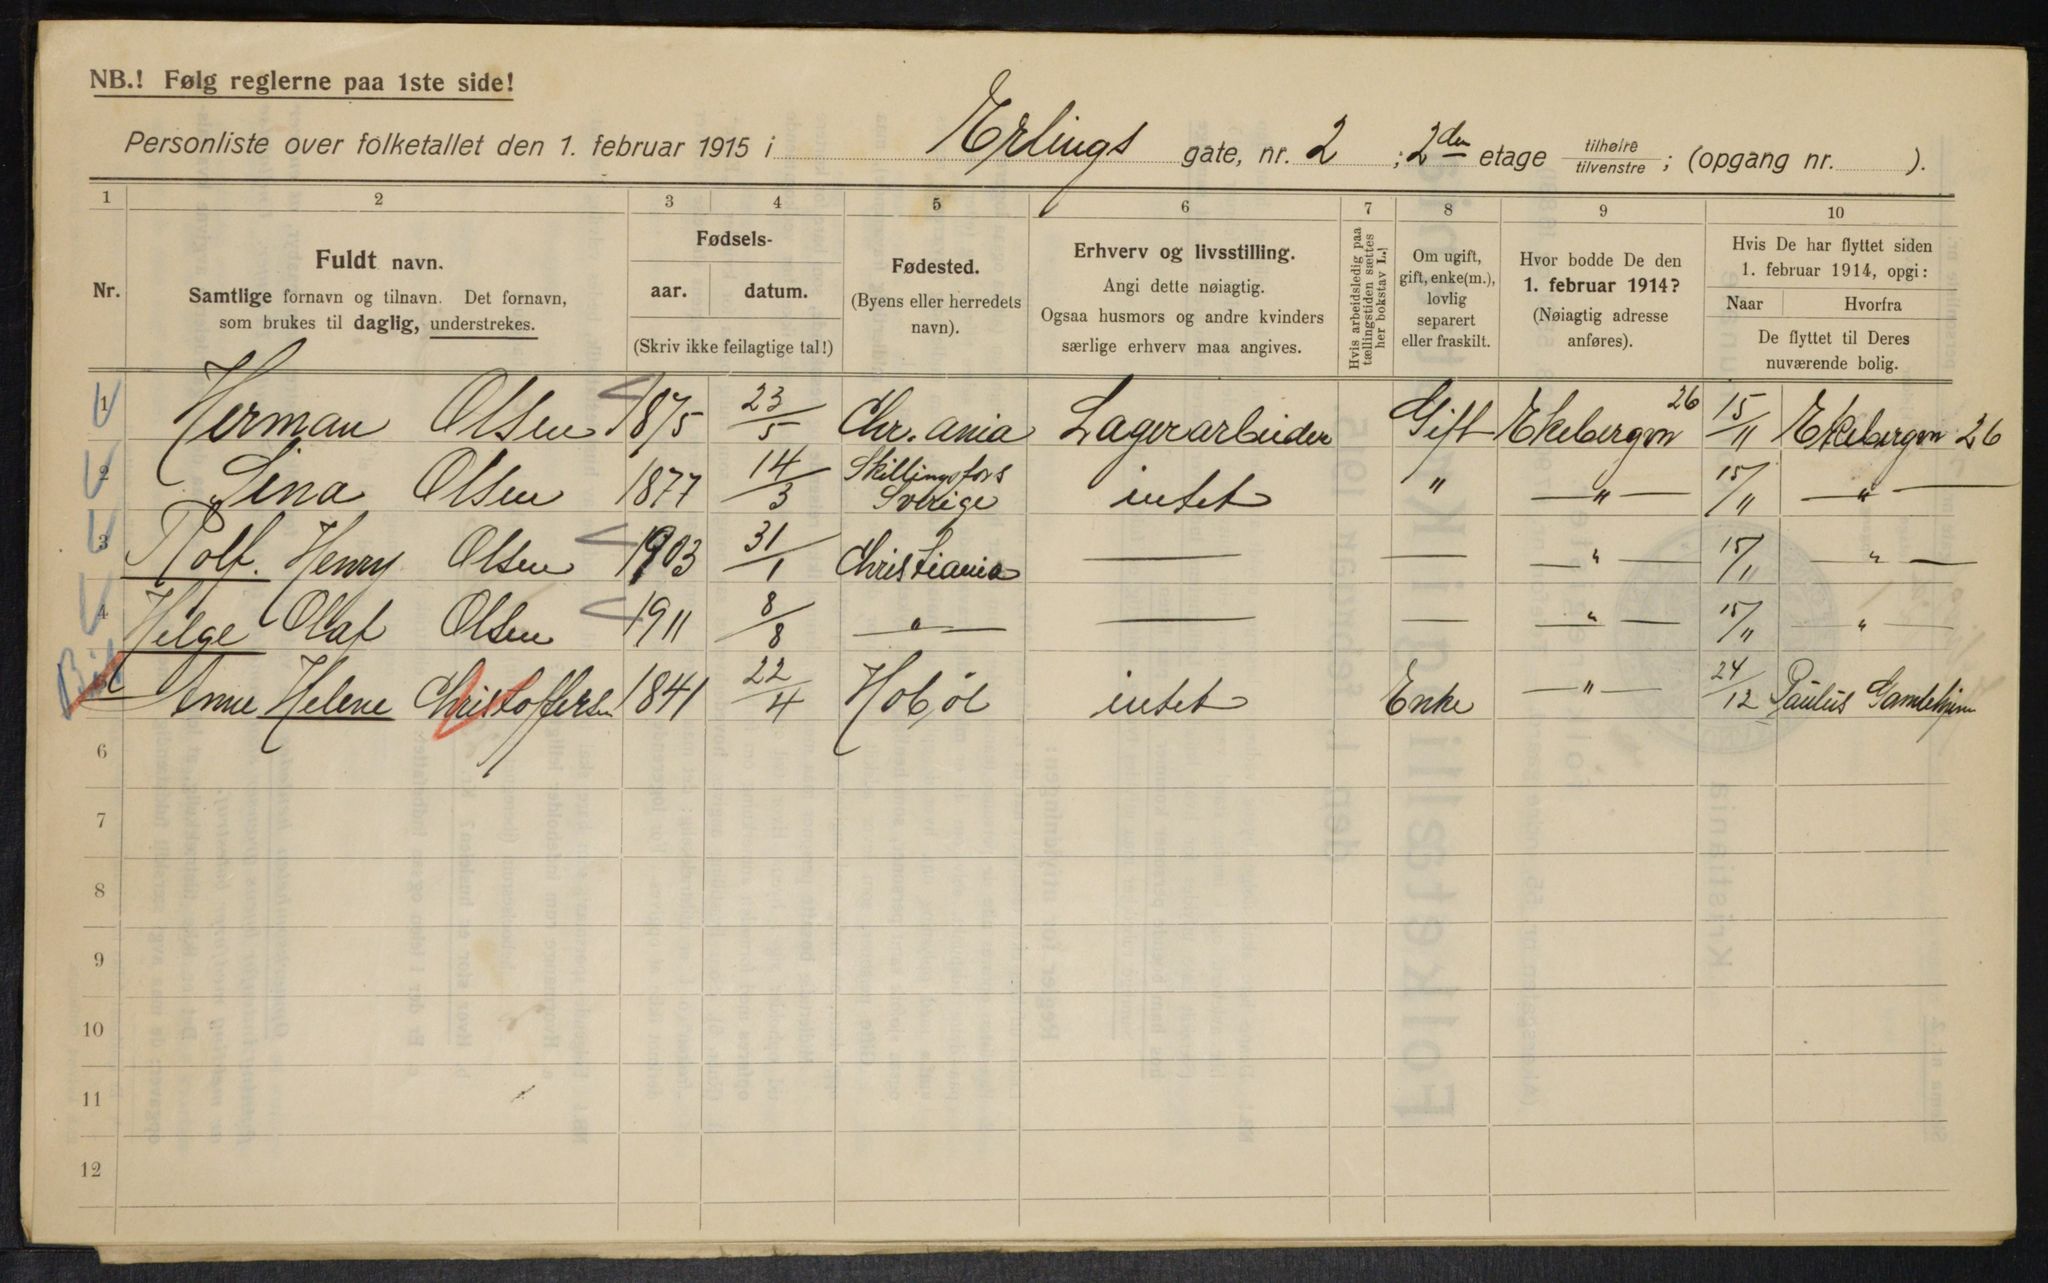 NB.! Følg reglerne paa 1ste side!
Personliste over folketallet den 1. februar 1915 i Erlings gate, nr. 2 ; 2den etage tilhøire tilvenstre ; (opgang nr. ).
1 2 3 4 5 6 7 8 9 10
Nr.
Fuldt navn.
Samtlige fornavn og tilnavn. Det fornavn,
som brukes til daglig, understrekes.
Fødsels-
aar. datum.
(Skriv ikke feilagtige tal!)
Fødested.
(Byens eller herredets
navn).
Erhverv og livsstilling.
Angi dette nøiagtig.
Ogsaa husmors og andre kvinders
særlige erhverv maa angives.
Hvis arbeidsledig paa
tællingstiden sættes
her bokstav L.
Om ugift,
gift, enke(m.),
lovlig
separert
eller fraskilt.
Hvor bodde De den
1. februar 1914?
(Nøiagtig adresse
anføres).
Hvis De har flyttet siden
1. februar 1914, opgi:
Naar Hvorfra
De flyttet til Deres
nuværende bolig.
1 Herman Olsen 1875 23/5 Chr.ania Lagerarbeider Gift Ekebergvn 26 15/11 Ekebergvn 26
2 Lina Olsen 1877 14/3 Skillingsfors Sverige intet " — " — 15/11 — " —
3 Rolf Henry Olsen 1903 31/1 Christiania — — — " — 15/11 " —
4 Helge Olaf Olsen 1911 8/8 — " — — — — " — 15/11 — " —
Anne Helene Christoffersen 1841 22/4 Hobøl intet Enke — " — 24/12 Paulus
6
7
8
9
10
11
12